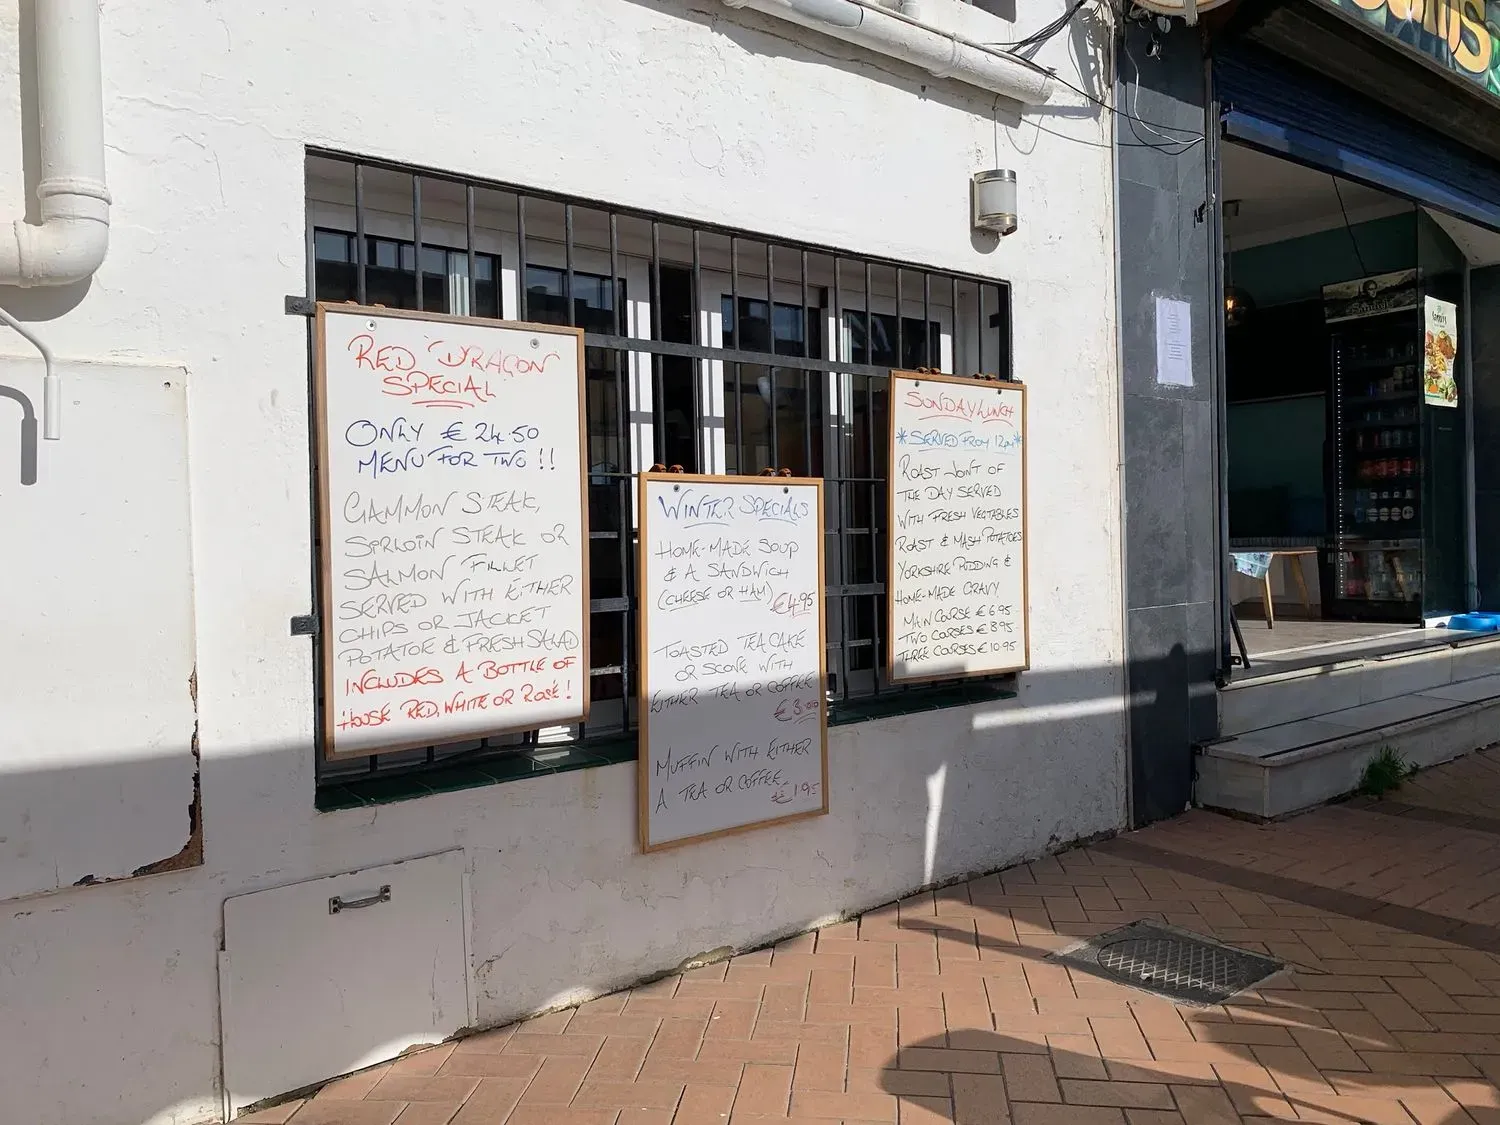 RED "DRAGON"
SPECIAL
ONLY € 24.50
MENU FOR TWO !!
GAMMON STEAK,
SIRLOIN STEAK OR
SALMON FILLET
SERVED WITH EITHER
CHIPS OR JACKET
POTATOE & FRESH SALAD
INCLUDES A BOTTLE OF
HOUSE RED, WHITE OR ROSÉ !
WINTER SPECIALS
HOME-MADE SOUP
& A SANDWICH
(CHEESE OR HAM)
€4.95
TOASTED TEACAKE
OR SCONE WITH
EITHER TEA OR COFFEE
€3.00
MUFFIN WITH EITHER
A TEA OR COFFEE
€1.95
SUNDAY LUNCH
*SERVED FROM 12pm*
ROAST JOINT OF
THE DAY SERVED
WITH FRESH VEGTABLES
ROAST & MASH POTATOES
YORKSHIRE PUDDING &
HOME-MADE GRAVY
MAIN COURSE € 6.95
TWO COURSES € 8.95
THREE COURSES € 10.95